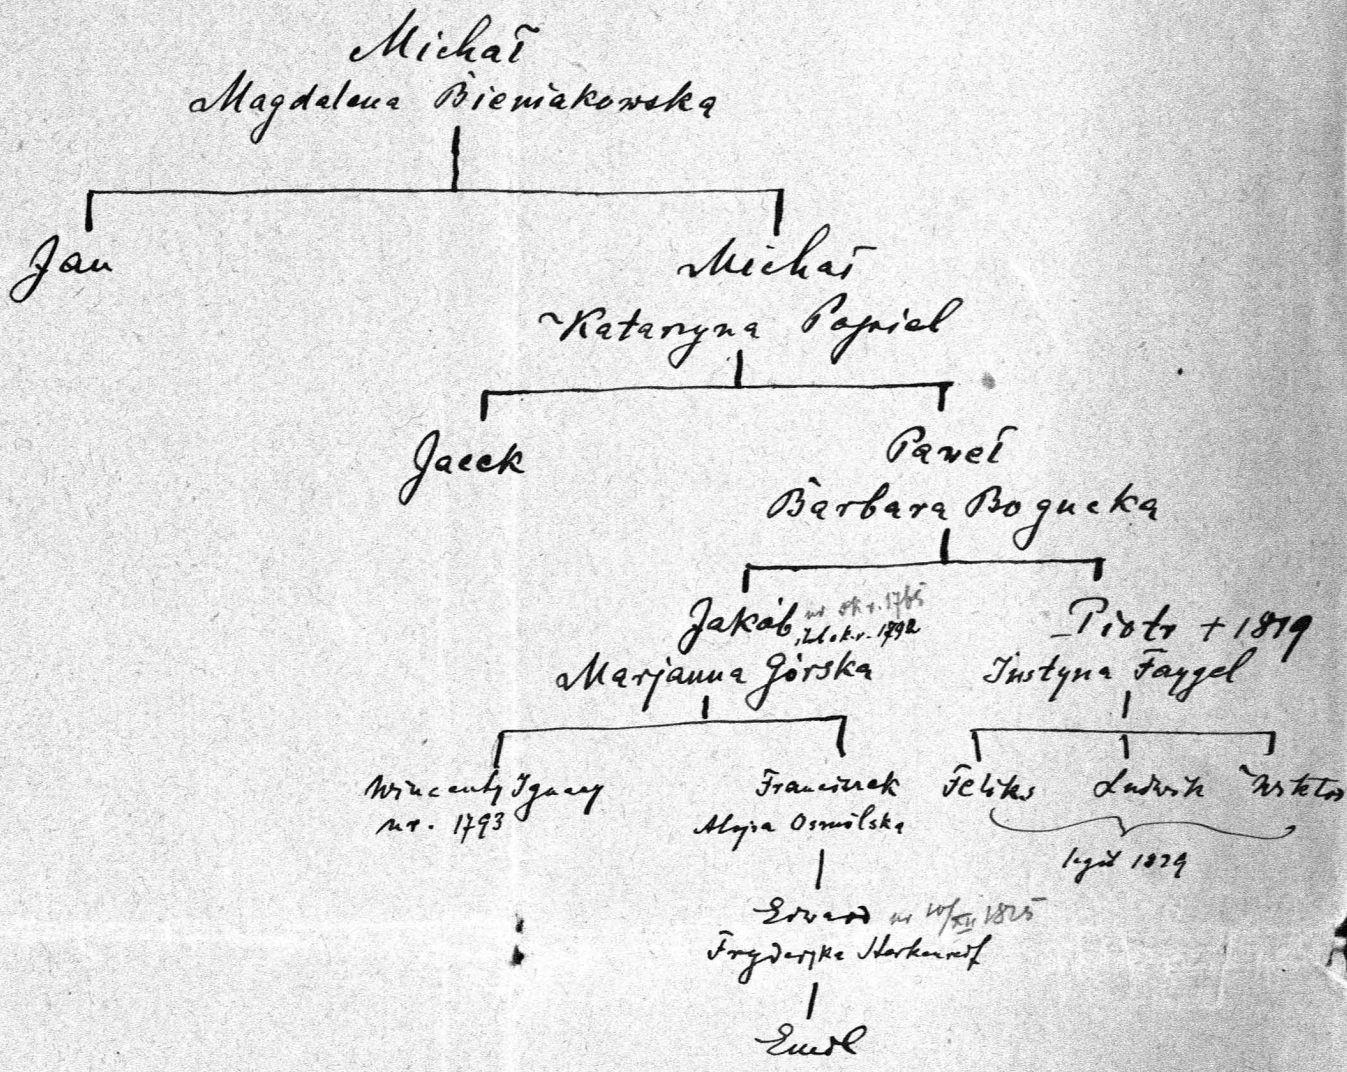 Michał
Magdalena Bieniakowska
Jan
Michał
Katarzyna Popiel
Jacek
Paweł
Barbara Bogucka
Jakób ur ok r. 1765
ok. r. 1792
Marjanna Górska
Piotr + 1819
Justyna Faygel
Wincenty Ignacy
ur. 1793
Franciszek
Alojza Osmólska
Feliks Ludwik Wiktor
legit 1829
Edward ur 10/XII 1825
Fryderyka
Emil